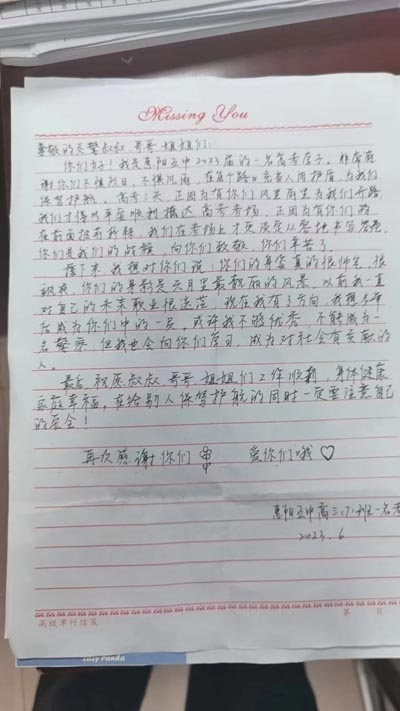 Missing You
尊敬的交警叔叔、哥哥姐姐们:
你们好!我是惠阳五中2023届的一名高考学子。非常感
谢你们不惧烈日,不惧风雨,在每个路口
保驾护航。高考三天,正因为有你们风里雨里为我们开路,
我们才得以平安顺利抵达高考考场,正因为有你们
我们在考场上才更淡定从容地书写答卷。
你们是我们的战友,向你们致敬,你们辛苦了。
接下来,我想对你们说:你们的身姿真的很帅气,很
飒爽,你们的身影是六月里最靓丽的风景。以前我一直
对自己的未来职业很迷茫,现在我有了方向,我想
成为你们中的一员,或许我不够优秀,不能成为一
名警察,但我也会向你们学习,成为对社会有贡献的
人。
最后,祝愿叔叔、哥哥、姐姐们工作顺利,身体健康
家庭幸福,在给别人保驾护航的同时一定要注意自己
的安全!
再次感谢你们 爱你们哦♡
惠阳五中高三(7)班一名考
2023.6
高级单行信笺 第 页
Easy Panda